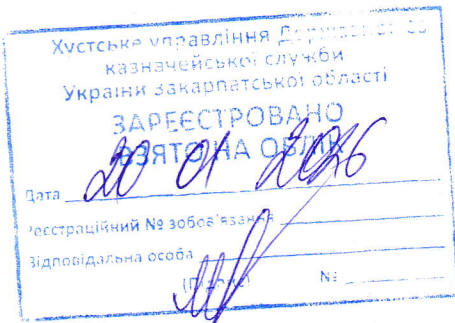 Хустське управління Державної
казначейської служби
України Закарпатської області
ЗАРЕЄСТРОВАНО
ВЗЯТО НА ОБЛІК
Дата 20 01 2026
Реєстраційний № зобов'язання
Відповідальна особа
(Підпис) №